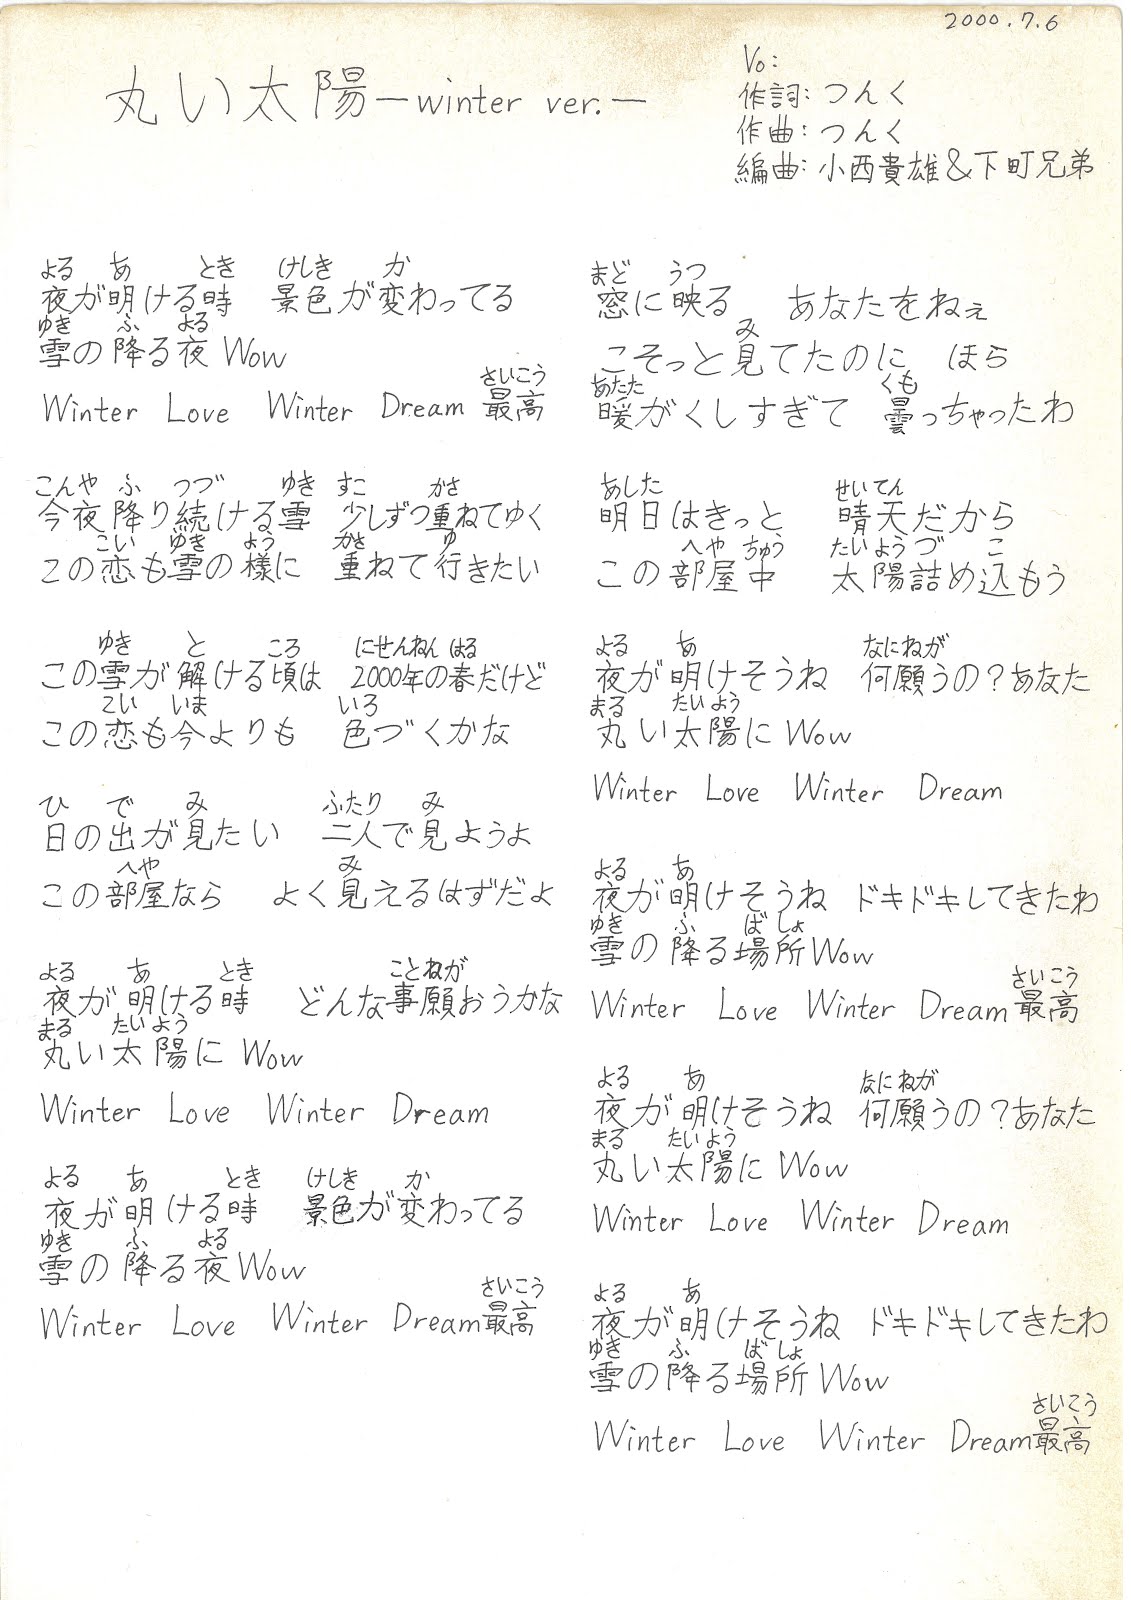 2000.7.6
丸い太陽 ―winter ver.―
Vo:
作詞: つんく
作曲: つんく
編曲: 小西貴雄&下町兄弟
よる あ とき けしき か
夜が明ける時 景色が変わってる
ゆき ふ よる
雪の降る夜 Wow
さいこう
Winter Love Winter Dream 最高
こんや ふ つづ ゆき すこ かさ
今夜降り続ける雪 少しずつ重ねてゆく
こい ゆき よう かさ ゆ
この恋も雪の様に 重ねて行きたい
ゆき と ころ にせんねん はる
この雪が解ける頃は 2000年の春だけど
こい いま いろ
この恋も今よりも 色づくかな
ひ で み ふたり み
日の出が見たい 二人で見ようよ
へや み
この部屋なら よく見えるはずだよ
よる あ とき ことねが
夜が明ける時 どんな事願おうかな
まる たいよう
丸い太陽に Wow
Winter Love Winter Dream
よる あ とき けしき か
夜が明ける時 景色が変わってる
ゆき ふ よる
雪の降る夜 Wow
さいこう
Winter Love Winter Dream 最高
まど うつ
窓に映る あなたをねぇ
み
こそっと見てたのに ほら
あたた くも
暖がくしすぎて 曇っちゃったわ
あした せいてん
明日はきっと 晴天だから
へや ちゅう たいよう づ こ
この部屋中 太陽詰め込もう
よる あ なにねが
夜が明けそうね 何願うの?あなた
まる たいよう
丸い太陽に Wow
Winter Love Winter Dream
よる あ
夜が明けそうね ドキドキしてきたわ
ゆき ふ ばしょ
雪の降る場所 Wow
さいこう
Winter Love Winter Dream 最高
よる あ なにねが
夜が明けそうね 何願うの?あなた
まる たいよう
丸い太陽に Wow
Winter Love Winter Dream
よる あ
夜が明けそうね ドキドキしてきたわ
ゆき ふ ばしょ
雪の降る場所 Wow
さいこう
Winter Love Winter Dream 最高